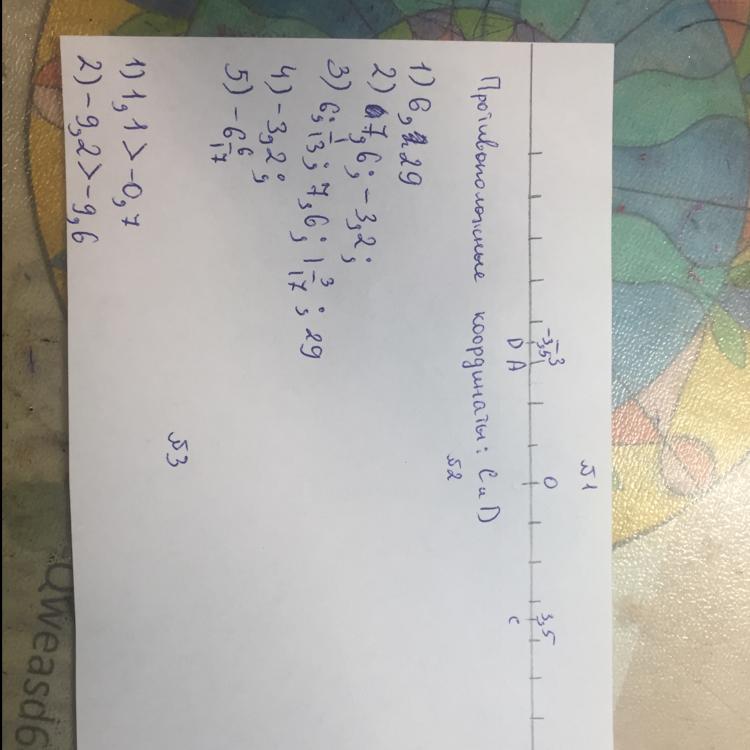 №1
-3,5 -3 0 3,5
D A C
Противоположные координаты: C и D
№2
1) 6, 29
2) 7,6; -3,2;
3) 6; 13; 7,6; 1 3/17; 29
4) -3,2;
5) -6 6/17
№3
1) 1,1 > -0,7
2) -9,2 > -9,6
Qweasd6